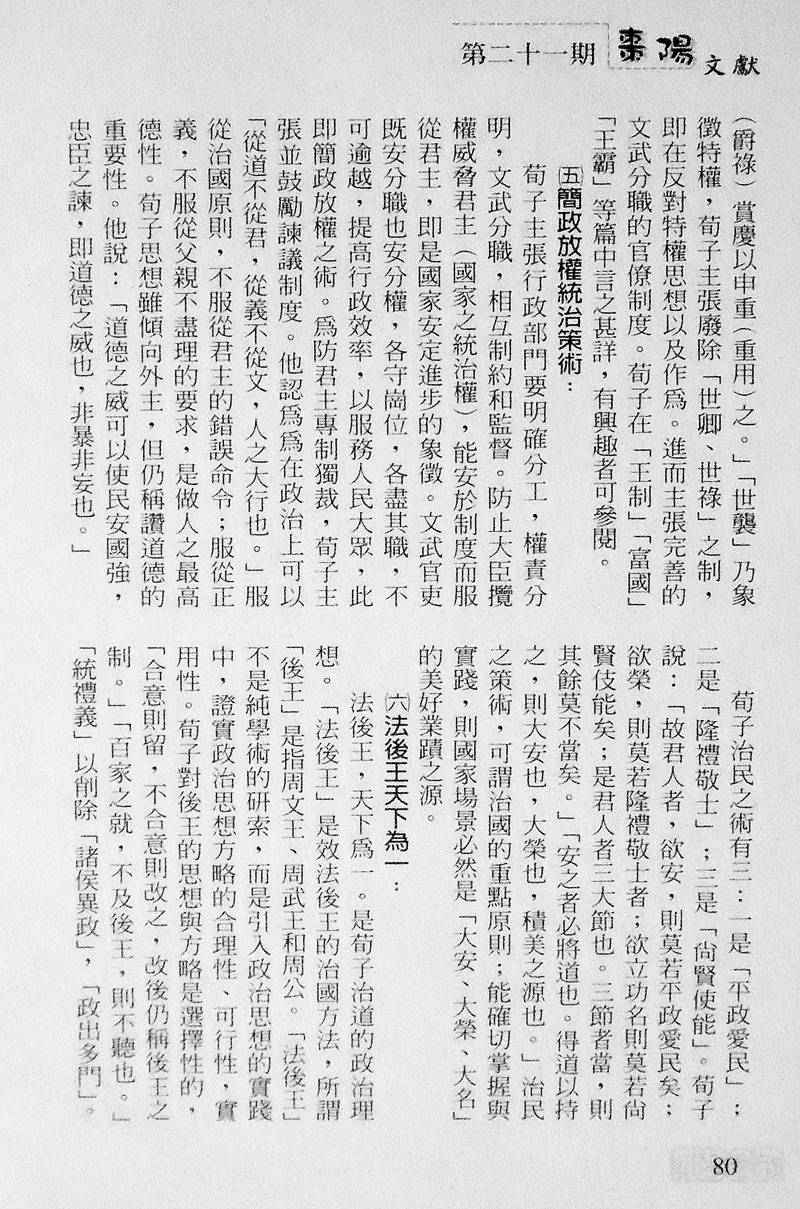 第二十一期 棗陽文獻
（爵祿）賞慶以申重（重用）之。」「世襲」乃象
徵特權，荀子主張廢除「世卿、世祿」之制，
即在反對特權思想以及作爲。進而主張完善的
文武分職的官僚制度。荀子在「王制」「富國」
「王霸」等篇中言之甚詳，有興趣者可參閱。
㈤簡政放權統治策術：
荀子主張行政部門要明確分工，權責分
明，文武分職，相互制約和監督。防止大臣攬
權威脅君主（國家之統治權），能安於制度而服
從君主，即是國家安定進步的象徵。文武官吏
既安分職也安分權，各守崗位，各盡其職，不
可逾越，提高行政效率，以服務人民大眾，此
即簡政放權之術。爲防君主專制獨裁，荀子主
張並鼓勵諫議制度。他認爲爲在政治上可以
「從道不從君，從義不從文，人之大行也。」服
從治國原則，不服從君主的錯誤命令；服從正
義，不服從父親不盡理的要求，是做人之最高
德性。荀子思想雖傾向外主，但仍稱讚道德的
重要性。他說：「道德之威可以使民安國強，
忠臣之諫，即道德之威也，非暴非妄也。」
荀子治民之術有三：一是「平政愛民」；
二是「隆禮敬士」；三是「尚賢使能」。荀子
說：「故君人者，欲安，則莫若平政愛民矣；
欲榮，則莫若隆禮敬士者；欲立功名則莫若尚
賢伎能矣；是君人者三大節也。三節者當，則
其餘莫不當矣。」「安之者必將道也。得道以持
之，則大安也，大榮也，積美之源也。」治民
之策術，可謂治國的重點原則；能確切掌握與
實踐，則國家場景必然是「大安、大榮、大名」
的美好業蹟之源。
㈥法後王天下為一：
法後王，天下爲一。是荀子治道的政治理
想。「法後王」是效法後王的治國方法，所謂
「後王」是指周文王、周武王和周公。「法後王」
不是純學術的研索，而是引入政治思想的實踐
中，證實政治思想方略的合理性、可行性，實
用性。荀子對後王的思想與方略是選擇性的，
「合意則留，不合意則改之，改後仍稱後王之
制。」「百家之就，不及後王，則不聽也。」
「統禮義」以削除「諸侯異政」，「政出多門」。
80